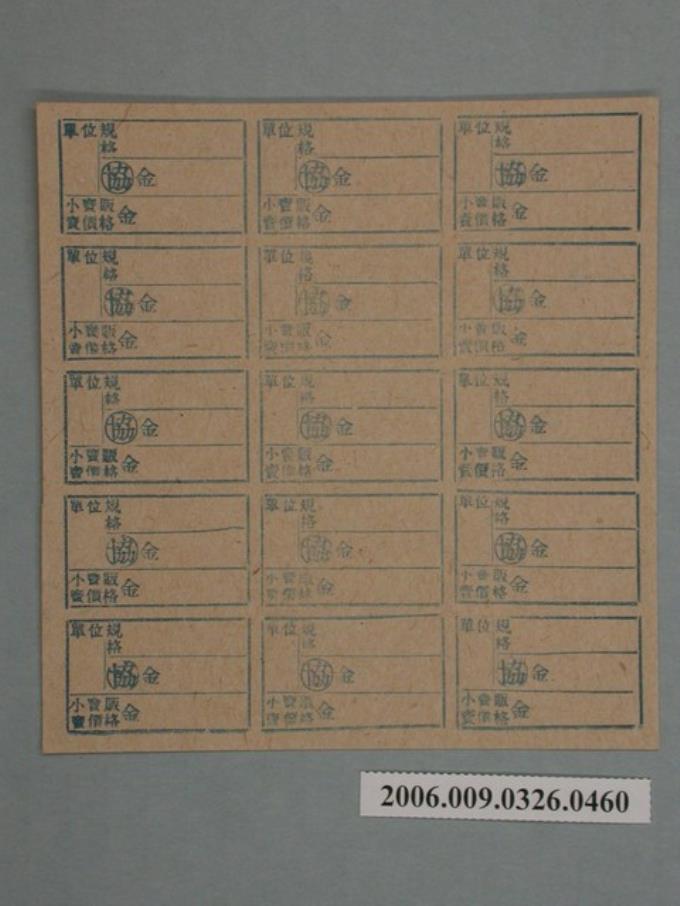 單位規格
協金
小賣販賣價格金
單位規格
協金
小賣販賣價格金
單位規格
協金
小賣販賣價格金
單位規格
協金
小賣販賣價格金
單位規格
協金
小賣販賣價格金
單位規格
協金
小賣販賣價格金
單位規格
協金
小賣販賣價格金
單位規格
協金
小賣販賣價格金
單位規格
協金
小賣販賣價格金
單位規格
協金
小賣販賣價格金
單位規格
協金
小賣販賣價格金
單位規格
協金
小賣販賣價格金
單位規格
協金
小賣販賣價格金
單位規格
協金
小賣販賣價格金
單位規格
協金
小賣販賣價格金
2006.009.0326.0460